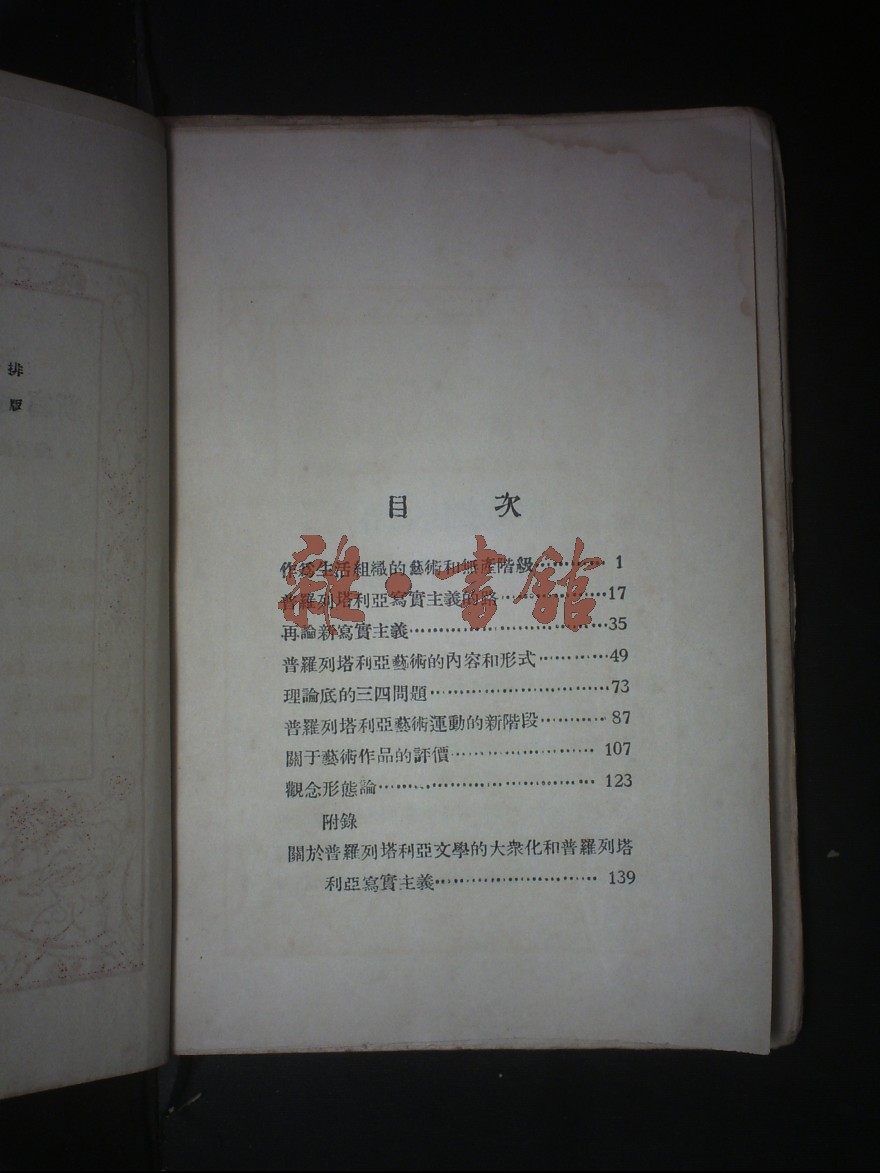 排
版
目 次
作爲生活組織的藝術和無產階級………… 1
普羅列塔利亞寫實主義的路…………17
再論新寫實主義…………35
普羅列塔利亞藝術的內容和形式…………49
理論底的三四問題…………73
普羅列塔利亞藝術運動的新階段…………87
關于藝術作品的評價………… 107
觀念形態論………… 123
附錄
關於普羅列塔利亞文學的大衆化和普羅列塔
利亞寫實主義………… 139
雜·書館